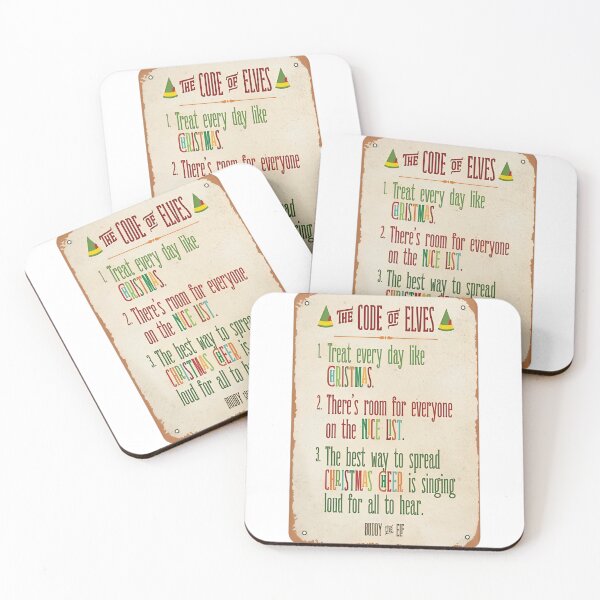 THE CODE OF ELVES
1. Treat every day like
CHRISTMAS.
2. There's room for everyone
THE CODE OF ELVES
1. Treat every day like
CHRISTMAS.
2. There's room for everyone
on the NICE LIST.
3. The best way to spread
THE CODE OF ELVES
1. Treat every day like
CHRISTMAS.
2. There's room for everyone
on the NICE LIST.
3. The best way to spread
CHRISTMAS CHEER is
loud for all to hear.
BUDDY
THE CODE OF ELVES
1. Treat every day like
CHRISTMAS.
2. There's room for everyone
on the NICE LIST.
3. The best way to spread
CHRISTMAS CHEER is singing
loud for all to hear.
BUDDY THE ELF